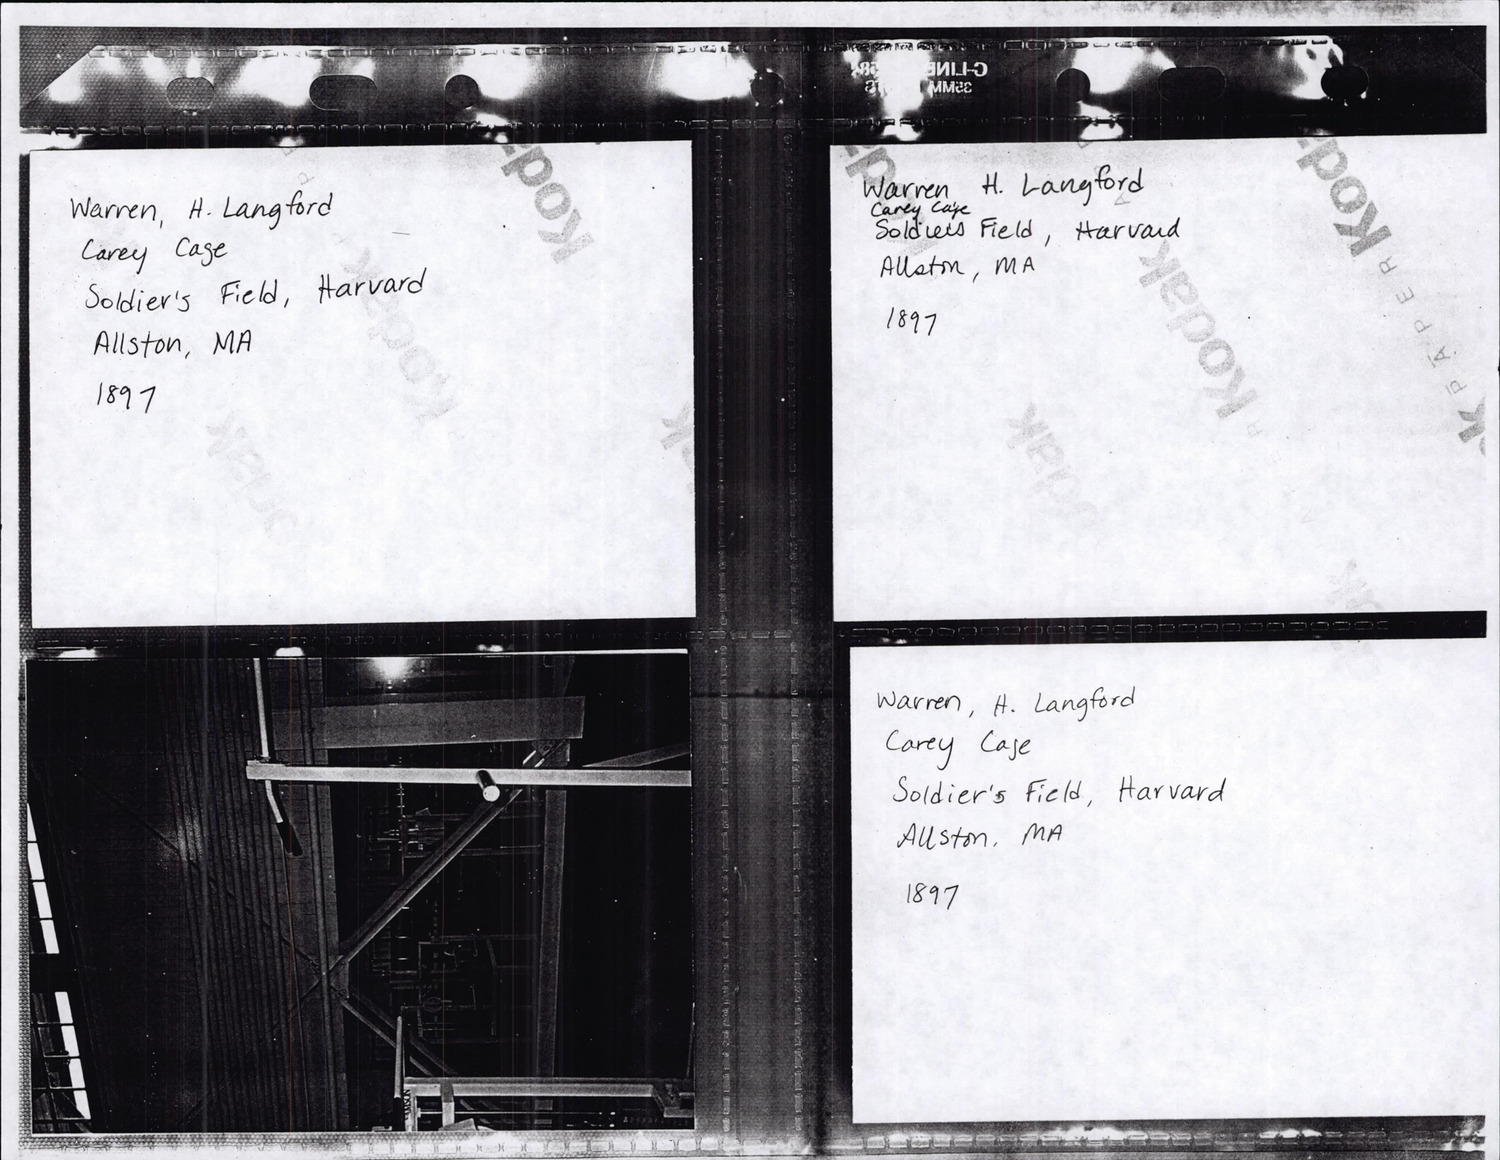 C-LINE
35MM
Warren, H. Langford
Carey Cage
Soldier's Field, Harvard
Allston, MA
1897
Kodak
Kodak
Kodak
Warren H. Langford
Carey Cage
Soldiers Field, Harvard
Allston, MA
1897
Kodak
Kodak
Kodak
PAPER
Warren, H. Langford
Carey Cage
Soldier's Field, Harvard
Allston, MA
1897